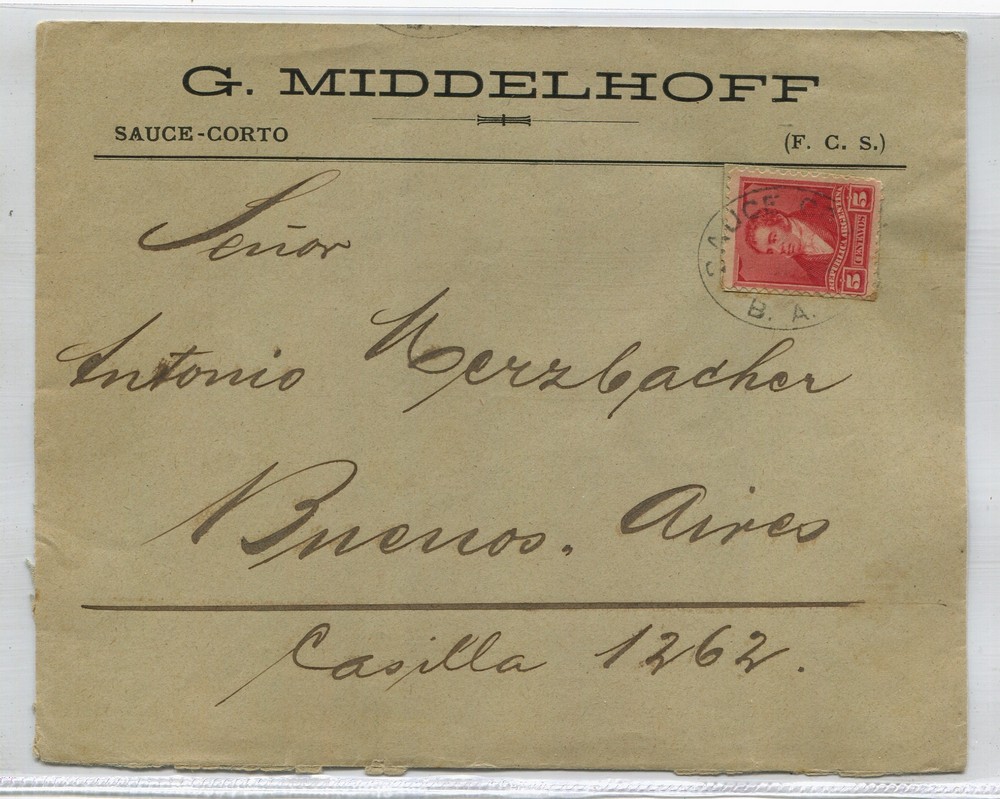 G. MIDDELHOFF
SAUCE-CORTO
(F. C. S.)
5 CENTAVOS 5
REPUBLICA ARGENTINA
SAUCE C
B. A.
Señor
Antonio Merzbacher
Buenos. Aires
Casilla 1262.